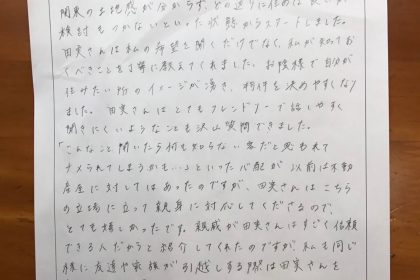 関東の土地感が分からず、どの辺りに住めば良いか
検討もつかないといった状態からスタートしました。
田実さんは私の希望を聞くだけでなく、私が知ってお
くべきことを丁寧に教えてくれました。お陰様で自分が
住みたい所のイメージが湧き、物件を決めやすくなり
ました。田実さんはとてもフレンドリーで話しやすく
聞きにくいようなことも沢山質問できました。
「こんなこと聞いたら何も知らない客だと思われて
ナメられてしまうかも…」といった心配が以前は不動
産屋に対してはあったのですが、田実さんはこちら
の立場に立って親身に対応してくださるので、
とても嬉しかったです。親戚が田実さんはすごく信頼
できる人だからと紹介してくれたのですが、私も同じ
様に友達や家族が引越しする際は田実さんを